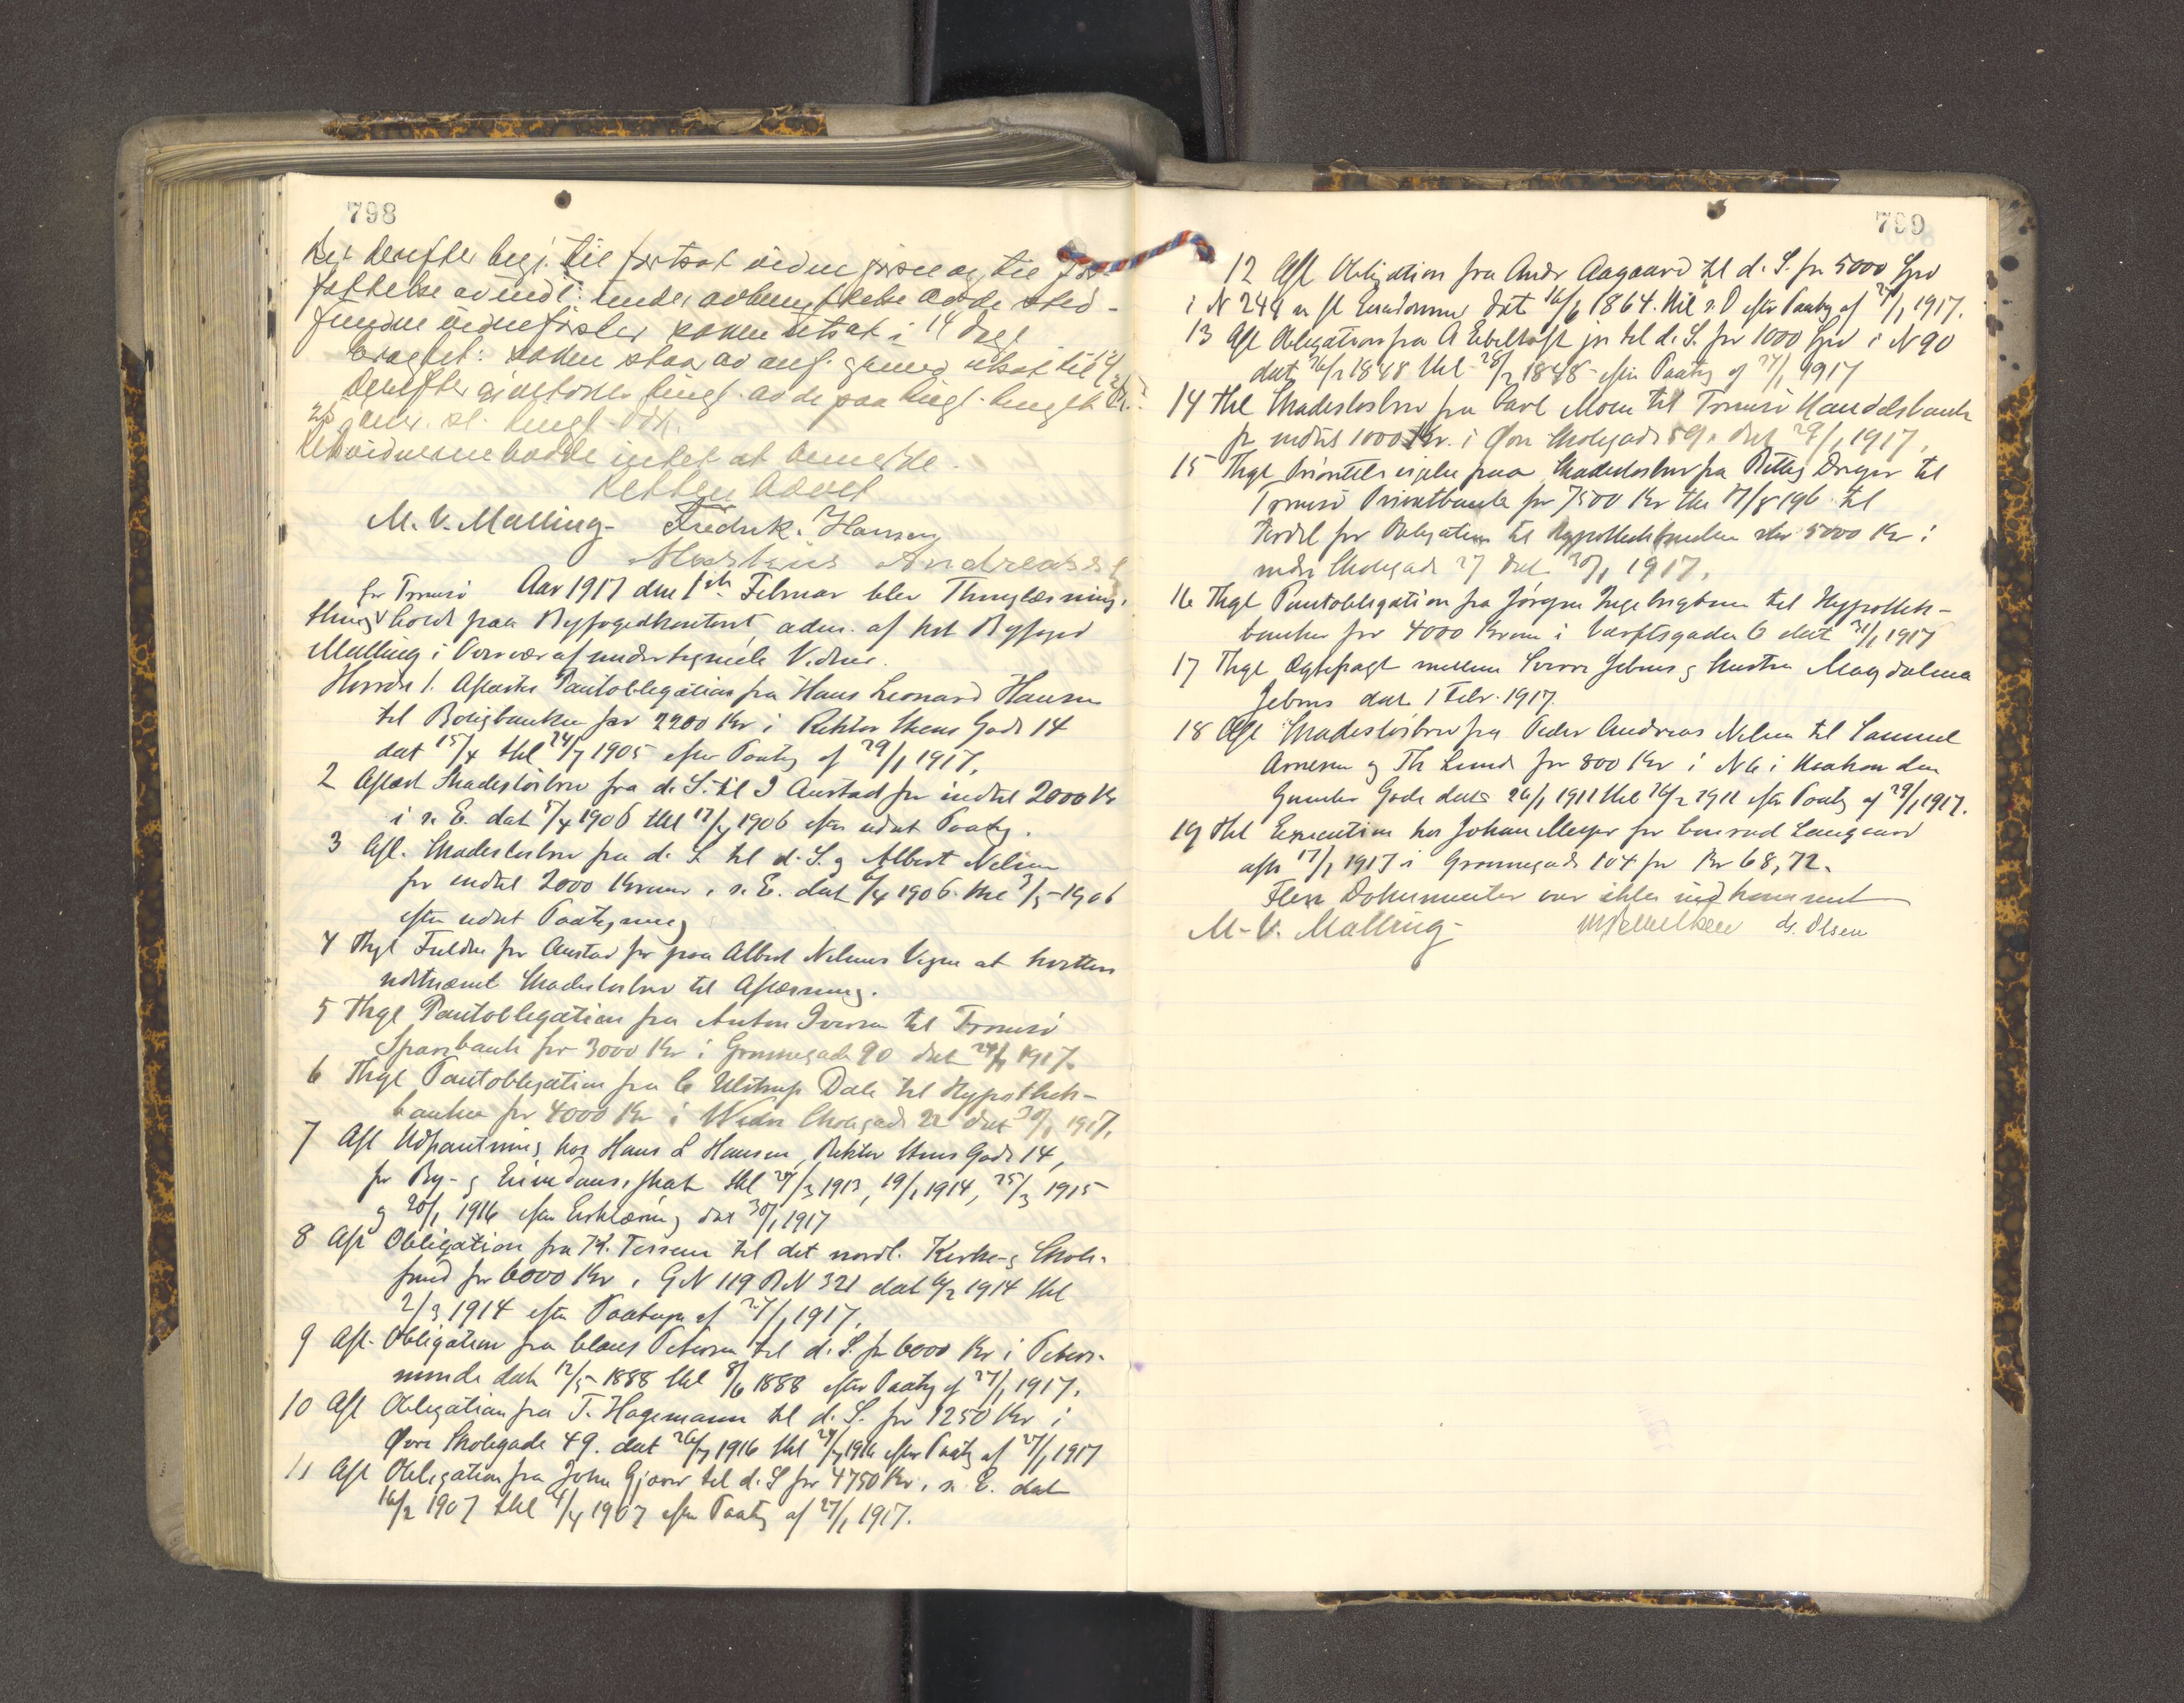 798
Det derefter begj. til fortsat
under avbenyttelse av de sted-
fundne vidneførsler saken utsat i 14 dage
saken staar
Retsvidnerne hadde intet at bemerke.
Retten hævet
M. V. Malling - Fredrik. Hansen
Andreassen
for Tromsö Aar 1917 den 1ste Februar blev Thinglæsnings-
thing holdt paa Byfogedkontoret, adm. af kst Byfoged
Malling i Overvær af undertegnede Vidner.
Herunder 1. Aflæstes Pantobligation fra Hans Leonard Hansen
til Boligbanken for 2200 Kr i Rektor Steens Gade 14
dat 15/4 thl 24/7 1905 efter Paateg af 29/1 1917.
2 Aflæst Skadeslösbrev fra d. S. til I Austad for indtil 2000 Kr
i s. E. dat 5/4 1906 thl 17/4 1906 efter udat Paateg.
3 Afl. Skadeslosbrev fra d. S. til d. S. og Albert Nilsen
for indtil 2000 Kroner i s. E. dat 6/4 1906. thl 3/5 1906
efter udat Paategning
4 Thgl Fuldm for Austad for paa Albert Nilsens Vegne at kvittere
sidstnævnte Skadeslosbrev til Aflæsning.
5 Thgl Pantobligation fra Anton Iversen til Tromsö
Sparebank for 3000 Kr i Grönnegade 90 dat 24/1 1917.
6 Thgl Pantobligation fra C Ulstrup Dahl til Hypothek-
banken for 4000 Kr i Nedre Skolegade 22 dat 30/1 1917.
7 Afl Udpantning hos Hans L Hansen, Rektor Steens Gade 14,
for By- og Eiendomsskat thl 27/3 1913, 19/1 1914, 25/3 1915
og 20/1 1916 efter Erklæring dat 30/1 1917
8 Afl Obligation fra K. Tessem til det nordl. Kirke- og Skole-
fond for 6000 Kr i G N 119 B N 321 dat 6/2 1914 thl
2/3 1914 efter Paategn af 27/1 1917.
9 Afl. Obligation fra Claus Petersen til d. S. for 6000 Kr i Peters-
minde dat 12/5 1888 thl 8/6 1888 efter Paateg af 27/1 1917.
10 Afl Obligation fra T. Hagemann til d. S. for 1250 Kr i
Övre Skolegade 49. dat 26/7 1916 thl 29/7 1916 efter Paateg af 27/1 1917
11 Afl Obligation fra John Gjæver til d. S for 4750 Kr i s. E. dat
16/2 1907 thl 4/4 1907 efter Paateg af 27/1 1917.
799
12 Afl Obligation fra Andr Aagaard til d. S. for 5000 Spd
i N 244 m fl Eiendomme dat 16/6 1864. thl s. D efter Paateg af 27/1 1917.
13 Afl Obligation fra A Ebeltoft jr til d. S. for 1000 Spd i N 90
dat 26/2 1848 thl 28/2 1848 efter Paateg af 27/1 1917
14 thl Skadeslosbrev fra Carl Moen til Tromsö Handelsbank
for indtil 1000 Kr. i Övre Skolegade 59. dat 29/1 1917.
15 Thgl Prioritetsvigelse paa Skadeslosbrev fra Betty Dreyer til
Tromsö Privatbank for 7500 Kr thl 17/8 1916 til
Fordel for Obligation til Hypothekbanken stor 5000 Kr i
nedre Skolegade 27 dat 30/1 1917.
16 Thgl Pantobligation fra Jörgen Ingebrigtsen til Hypothek-
banken for 4000 Kroner i Værftsgaden 6 dat 31/1 1917
17 Thgl Ægtepagt mellem Sverre Jebens og Hustru Magdalena
Jebens dat. 1 Febr. 1917.
18 Afl Skadeslösbrev fra Peder Andreas Nilsen til Samuel
Arnesen og Th Lund for 800 Kr i N 6 i Haakon den
Gamles Gade dat 26/1 1911 thl 16/2 1911 efter Paateg af 29/1 1917.
19 thl Execution hos Johan Meyer for Conrad Langaard
afh 17/1 1917 i Grönnegade 104 for Kr 68,72.
Flere Dokumenter var ikke indkommet
M. V. Malling - G. Olsen